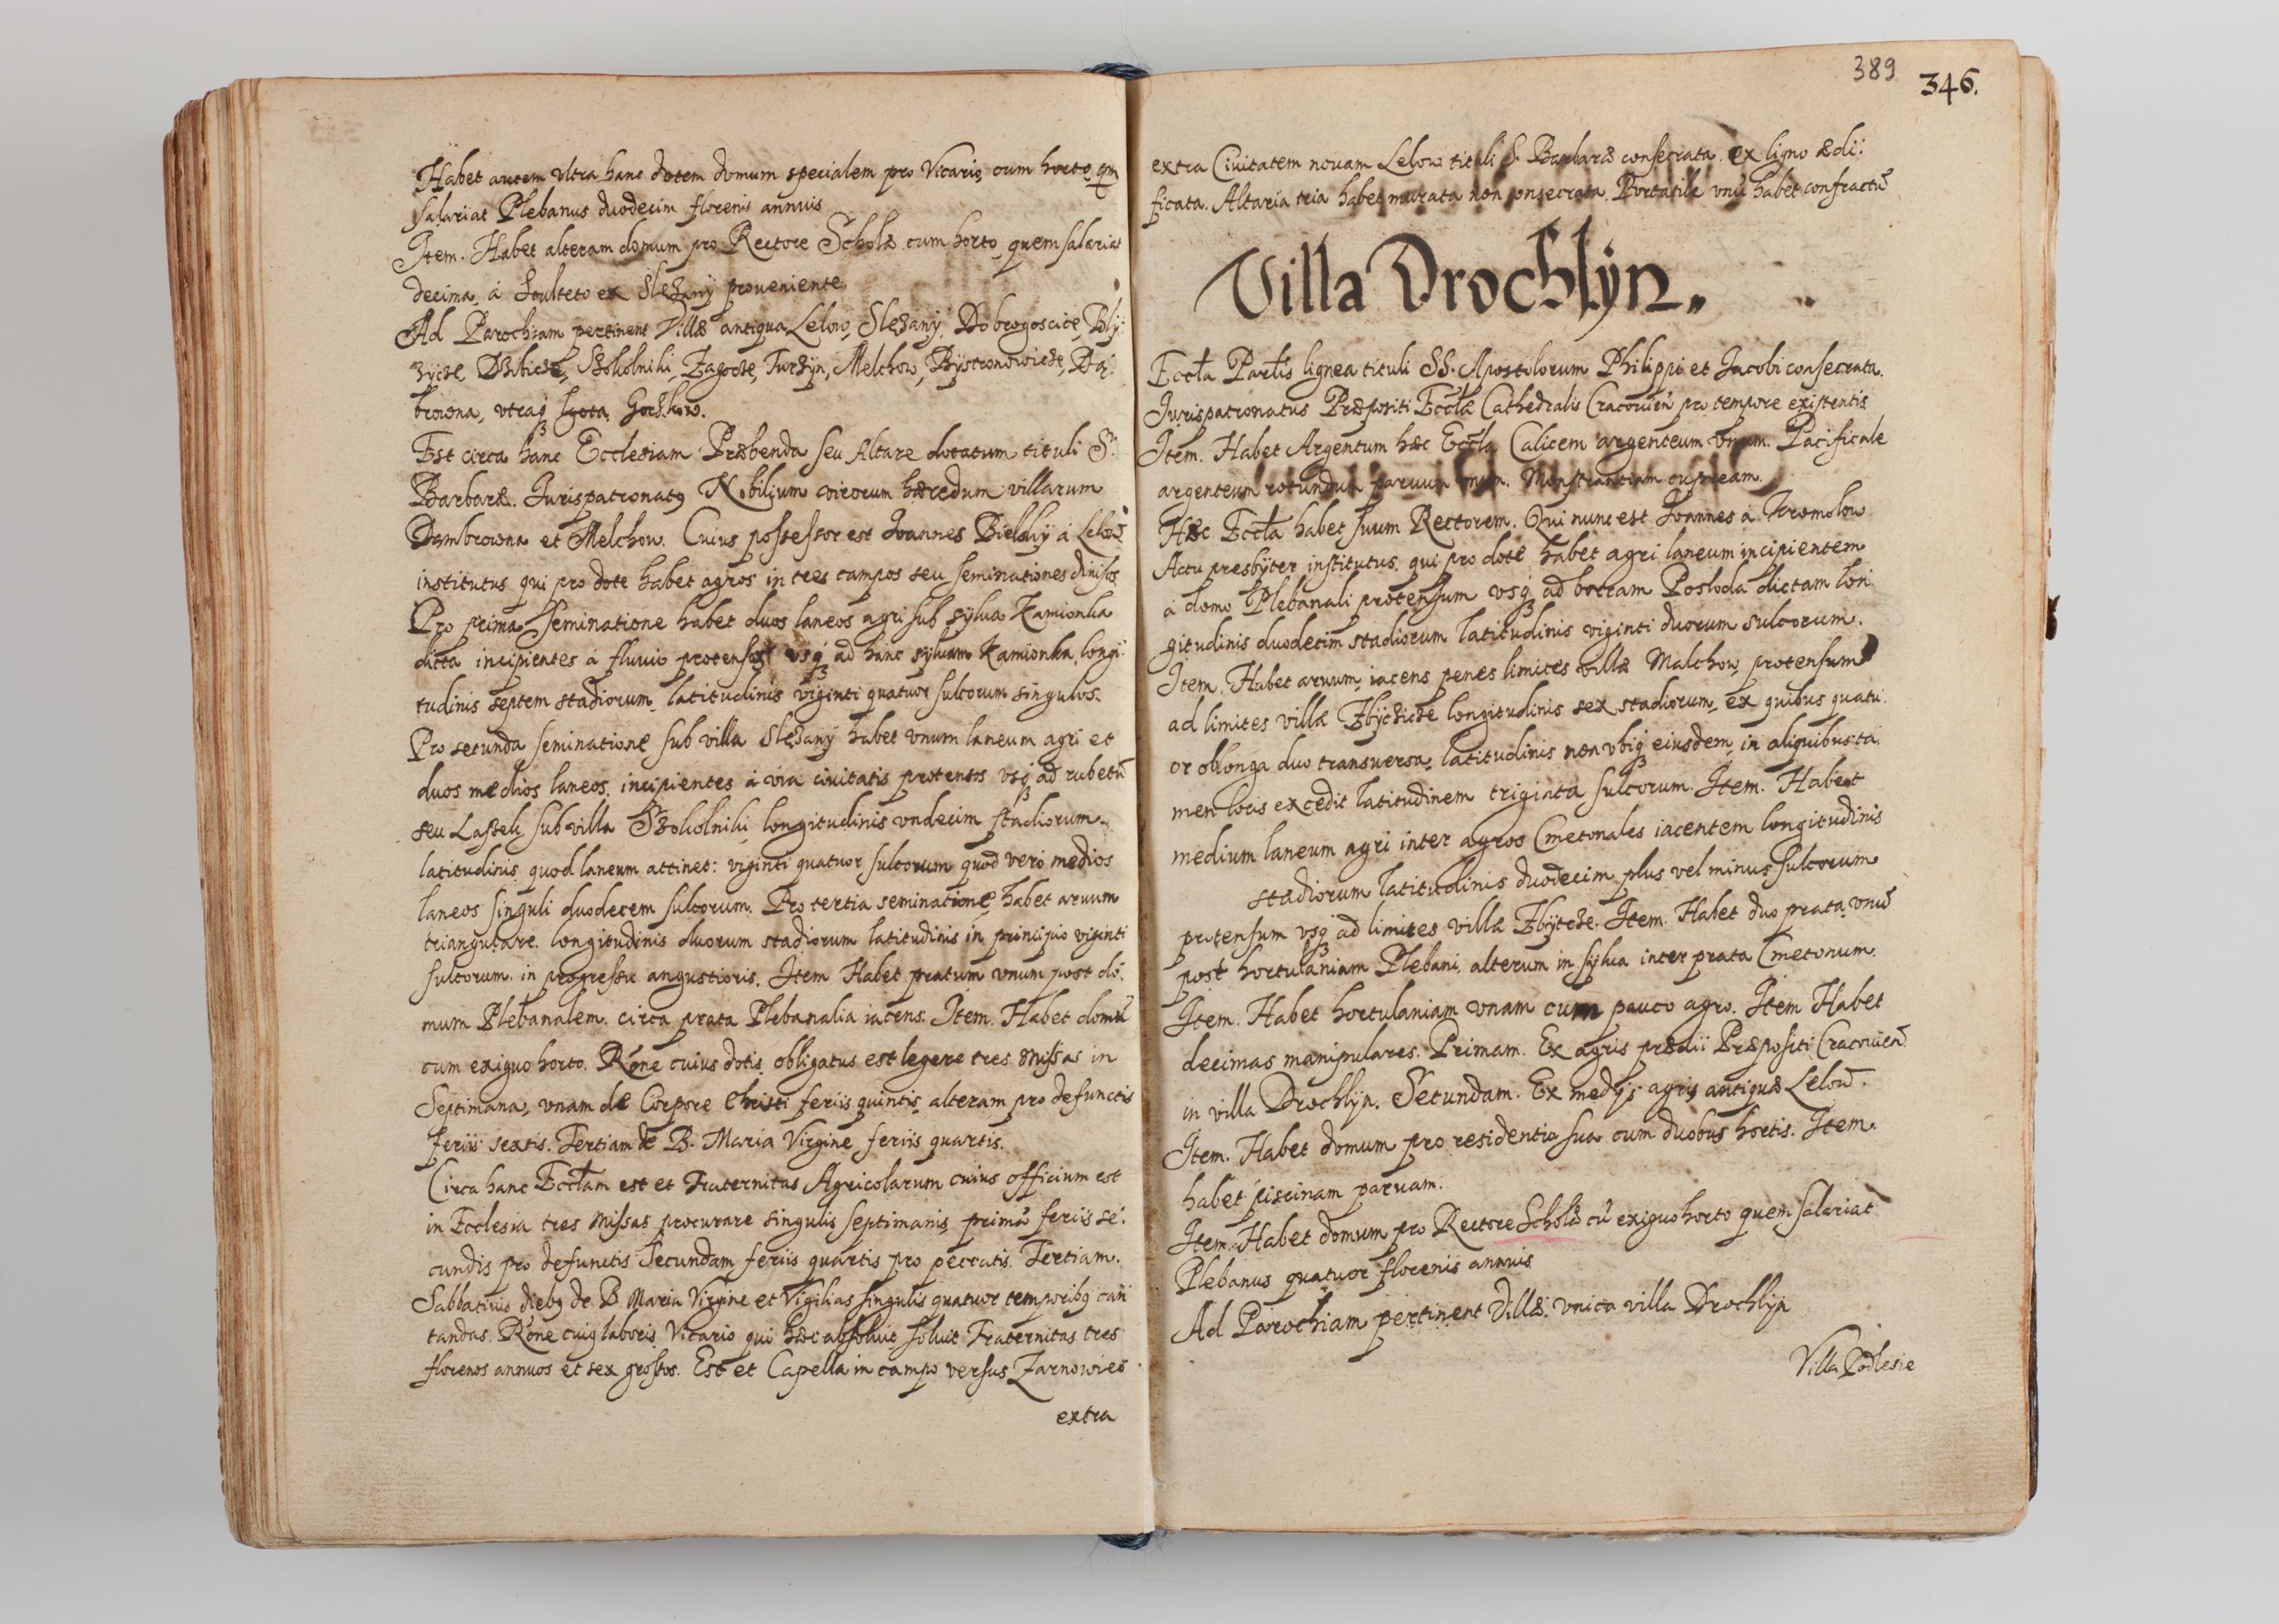 Habet autem vltra hanc dotem domum specialem pro Vicario, cum horto, qm
salariat Plebanus duodecim florenis annuis
Item. Habet alteram domum pro Rectore Scholæ cum horto quem salariat
decima, á Sculteto ex Slezany proueniente
Ad Parochiam pertinent Villæ antiqua Lelow, Slezany, Dobrogoscice, Bly:
zycze, Dzibicze, Skolniki, Zagorze, Turzyn, Melchow, Bystronowicze, Dą:
browna, vtraqꝫ Lgota, Gorzkow.
Est circa hanc Ecclesiam Præbenda seu Altare dotatum tituli S.
Barbaræ. Jurispatronatꝰ Nobilium virorum hæredum villarum
Dambrowna et Melchow. Cuius possessor est Joannes Bielsky á Lelow
institutus qui pro dote habet agros in tres campos seu seminationes diuisos
Pro prima seminatione habet duos laneos agri sub sylua Kamionka
dicta incipientes á fluuio protensos vsqꝫ ad hanc syluam Kamionka, longi:
tudinis septem stadiorum, latitudinis viginti quatuor sulcorum singulos.
Pro secunda seminatione sub villa Slezany habet vnum laneum agri et
duos medios laneos, incipientes á via ciuitatis protensos vsqꝫ ad rubetū
seu Lasek sub villa Skolniki longitudinis vndecim stadiorum,
latitudinis quod laneum attinet: viginti quatuor sulcorum quod veró medios
laneos singuli duodecem sulcorum. Pro tertia seminatione, habet aruum
triangulare, longitudinis duorum stadiorum latitudinis in principio viginti
sulcorum in progressu angustioris. Item Habet pratum vnum post do:
mum Plebanalem, circa prata Plebanalia iacens. Item. Habet domū
cum exiguo horto. Rōne cuius dotis obligatus est legere tres Missas in
Septimana, vnam de Corpore Christi feriis quintis, alteram pro defunctis
feriis sextis. Tertiam de B. Maria Virgine feriis quartis.
Circa hanc Ecctam est et Fraternitas Agricolarum cuius officium est
in Ecclesia tres Missas procurare singulis septimanis, primā feriis se:
cundis pro defunctis Secundam feriis quartis pro peccatis. Tertiam.
Sabbatinis diebꝰ de B. Maria Virgine et Vigilias singulis quatuor temporibꝰ can
tandas. Rōne cuiꝰ laboris Vicario qui hæc absoluit soluit Fraternitas tres
florenos annuos et sex grossos. Est et Capella in campo versus Zarnowiec
extra
389
346.
extra Ciuitatem nouam Lelow tituli S. Barbaræ consecrata. ex ligno ædi:
ficata. Altaria tria habet murata non consecrata. Portatile vnū habet confractū
Villa Drochlyn.
Eccta Partis lignea tituli SS. Apostolorum Philippi et Jacobi consecrata.
Jurispatronatus Præpositi Ecctæ Cathedralis Cracouien pro tempore existentis
Item. Habet Argentum hæc Eccta Calicem argenteum vnum. Pacificale
argenteum rotundum paruum vnum. Monstrantiam cupream.
Hæc Eccta habet suum Rectorem. Qui nunc est Joannes á Kromolow
Actu presbyter institutus, qui pro dote habet agri laneum incipientem
á domo Plebanali protensum vsqꝫ ad borram Posloda dictam lon
gitudinis duodecim stadiorum latitudinis viginti duorum sulcorum.
Item. Habet aruum, iacens penes limites villæ Malchow, protensum
ad limites villæ Zbyczicze longitudinis sex stadiorum, ex quibus quatu
or oblonga duo transuersa, latitudinis non vbiqꝫ eiusdem, in aliquibus ta
men locis excedit latitudinem triginta sulcorum. Item. Habet
medium laneum agri inter agros Cmetonales iacentem longitudinis
stadiorum latitudinis duodecim plus vel minus sulcorum
protensum vsqꝫ ad limites villæ Zbytcze. Item. Habet duo prata, vnū
post hortulaniam Plebani, alterum in sylua inter prata Cmetonum.
Item. Habet hortulaniam vnam cum pauco agro. Item Habet
decimas manipulares. Primam. Ex agris prædii Præpositi Cracouien
in villa Drochlyn. Secundam. Ex medys agris antiquæ Lelow.
Item. Habet domum pro residentia sua cum duobus hortis. Item.
habet piscinam paruam.
Item. Habet domum pro Rectore Scholæ cū exiguo horto quem salariat
Plebanus quatuor florenis annuis
Ad Parochiam pertinent Villæ: vnica villa Drochlyn
Villa Podlesie